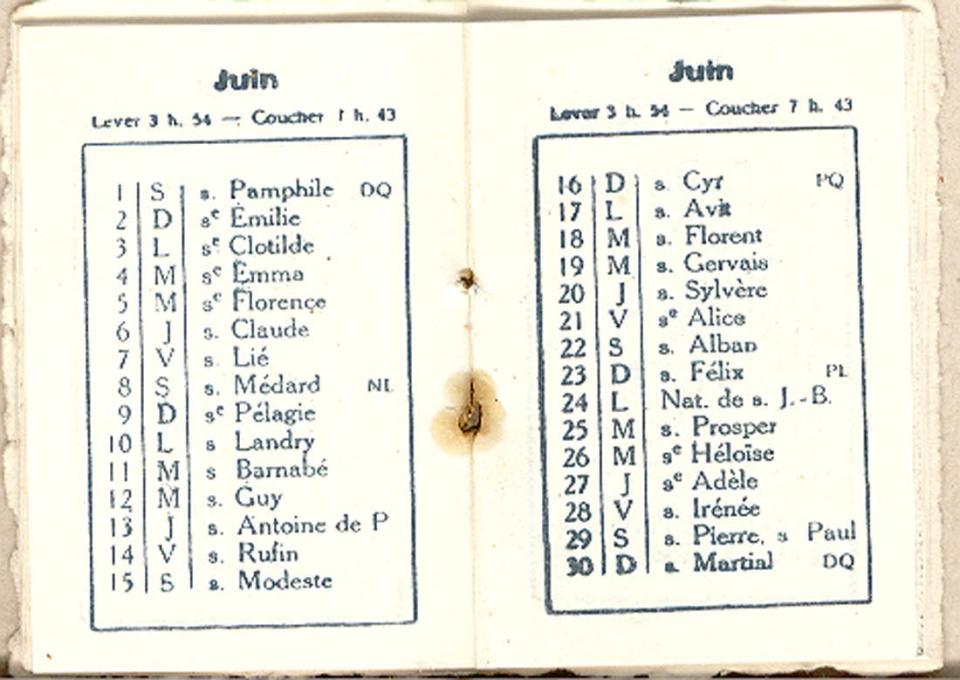 Juin
Lever 3 h. 54 — Coucher 7 h. 43
1 S s. Pamphile DQ
2 D sᵉ Émilie
3 L sᵉ Clotilde
4 M sᵉ Emma
5 M sᵉ Florence
6 J s. Claude
7 V s. Lié
8 S s. Médard NL
9 D sᵉ Pélagie
10 L s Landry
11 M s Barnabé
12 M s. Guy
13 J s. Antoine de P
14 V s. Rufin
15 S s. Modeste
Juin
Lever 3 h. 54 — Coucher 7 h. 43
16 D s. Cyr PQ
17 L s. Avit
18 M s. Florent
19 M s. Gervais
20 J s. Sylvère
21 V sᵉ Alice
22 S s. Alban
23 D s. Félix PL
24 L Nat. de s. J.-B.
25 M s. Prosper
26 M sᵉ Héloïse
27 J sᵉ Adèle
28 V s. Irénée
29 S s. Pierre, s Paul
30 D s. Martial DQ